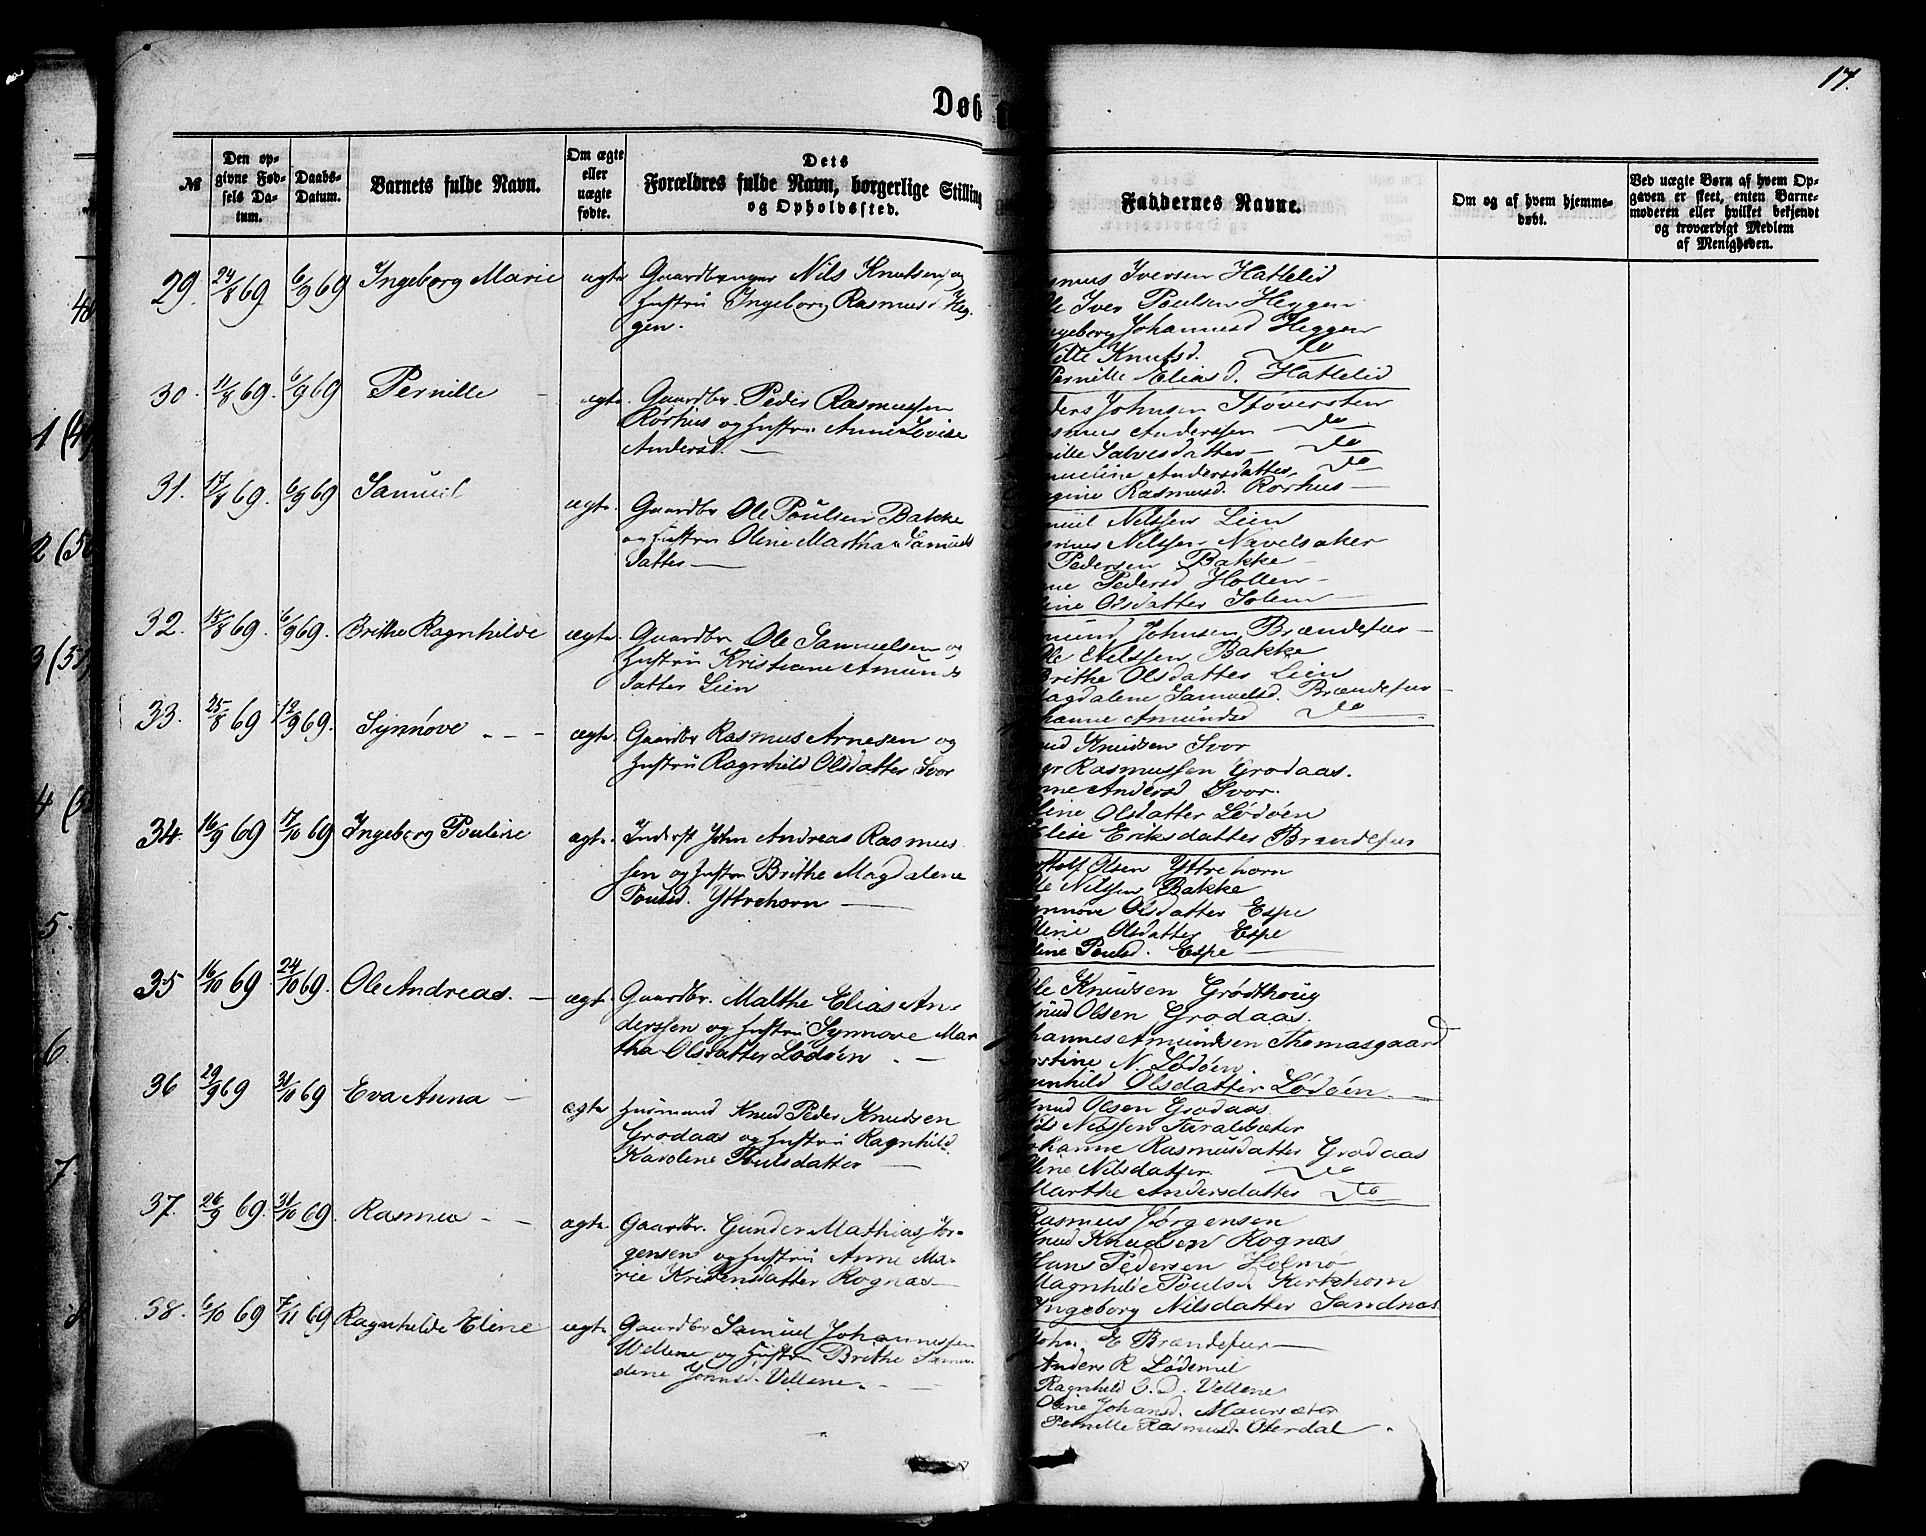 17.
Døb
№
Den op-
givne Fød-
sels Da-
tum.
Daabs-
Datum.
Barnets fulde Navn.
Om ægte
eller
uægte
fødte.
Dets
Forældres fulde Navn, borgerlige Stilling
og Opholdssted.
Faddernes Navne.
Om og af hvem hjemme-
døbt.
Ved uægte Børn af hvem Op-
gaven er skeet, enten Barne-
moderen eller hvilket bekjendt
og troværdigt Medlem
af Menigheden.
29. 24/8 69 6/9 69 Ingeborg Marie ægte Gaardbruger Nils Knutsen og
Hustru Ingeborg Rasmusd. Heg-
gen.
smus Iversen Hatlelid
le Iver Poulsen Heggen
ngeborg Johannesd Heggen
Knutsd. Do
Pernille Eliasd. Hatlelid
30. 11/8 69. 6/9 69 Pernille ægte Gaardbr. Peder Rasmussen
Rørhus og Hustru Anne Lovise
Andersd.
ders Johnsen Støversten
smus Anderssen Do
ille Do
Andersdatter Do
gine Rasmusd. Rørhus
31. 17/8 69. 6/9 69 Samuel ægte. Gaardbr Ole Poulsen Bakke
og Hustru Oline Martha Samuels
datter
muel Nilssen Lien
smus Nilssen Navelsaker
Pedersen Bakke
ne Pedersd Hollen
line Olsdatter Solem
32. 15/8 69. 6/9 69. Brithe Ragnhilde ægte. Gaardbr Ole Samuelsen og
Hustru Kristiane Amunds
datter Lien
mund Johnsen Brændefur
Ole Nilssen Bakke
Brithe Olsdatter Lien
Magdalene Samuelsd. Brændefur
hanne Amundsd Do
33. 25/8 69 12/9 69. Synnøve ægte. Gaardbr Rasmus Arnesen og
Hustru Ragnhild Olsdatter Svor
nud Knudsen Svor
Rasmussen Grodaas.
nne Andersd Svor.
line Olsdatter Lødøen
Elise Eriksdatter Brændefur
34. 16/9 69 17/10 69 Ingeborg Pouline ægte. Inderst John Andreas Rasmus
sen og Hustru Brithe Magdalene
Poulsd. Yttrehorn
Olsen Yttrehorn
Ole Nilssen Bakke
ynnøve Olsdatter Espe
line Olsdatter Espe
line Poulsd. Espe
35 16/10 69 24/10 69. Ole Andreas. ægte Gaardbr. Malthe Elias An-
derssen og Hustru Synnøve Mar
tha Olsdatter Lødøen
Ole Knudsen Grødthoug
Knud Olsen Grodaas.
ohannes Amundsen Thomasgaard
istine N. Lødøen.
gnhild Olsdatter Lødøen.
36 29/9 69 31/10 69 Eva Anna ægte Husmand Knud Peder Knudsen
Grodaas og Hustru Ragnhild
Karoline Poulsdatter
Knud Olsen Grodaas
Nils Nilssen Taraldsæter
ohanne Rasmusdatter Grodaas
line Nilsdatter. Do
Marthe Andersdatter Do
37. 26/9 69. 31/10 69. Rasmus ægte Gaardbr. Gunder Mathias Jør-
gensen og Hustru Anne Ma-
rie Kristensdatter Rognes
Rasmus Jørgensen
Knud Knudsen Rognes
Hans Pedersen Holmø
Magnhilde Poulsd. Kirkhorn
Ingeborg Nilsdatter Sandnes
38. 6/10 69 7/11 69 Ragnhilde Eline ægte. Gaardbr Samuel Johannessen
Vellene og Hustru Brithe Samu-
eline Johnsd. Vellene.
John E Brændefur
Anders R Lødemel
Ragnhild S. D. Vellene
Oline Johansd. Maursæter
Pernille Rasmusd. Osterdal